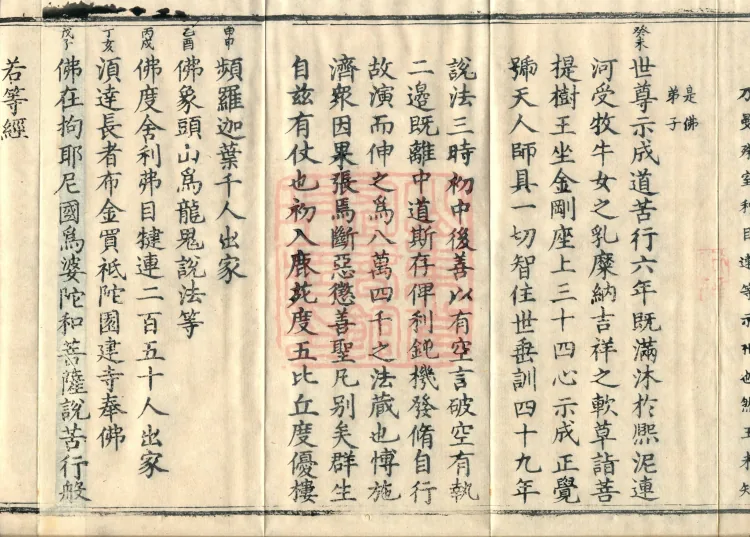 是佛
弟子
癸未 世尊示成道苦行六年既滿沐於熈泥連
河受牧牛女之乳糜納吉祥之軟草詣菩
提樹王坐金剛座上三十四心示成正覺
號天人師具一切智住世垂訓四十九年
說法三時初中後善以有空言破空有執
二邊既離中道斯存俾利鈍機發脩自行
故演而伸之爲八萬四千之法藏也愽施
濟衆因果張焉斷惡懲善聖凡别矣群生
自兹有仗也初入鹿苑度五比丘度優樓
甲申 頻羅迦葉千人出家
乙酉 佛象頭山爲龍鬼說法等
丙戌 佛度舍利弗目犍連二百五十人出家
丁亥 湏達長者布金買祇陀園建寺奉佛
戊子 佛在拘耶尼國爲婆陀和菩薩說苦行般
若等經